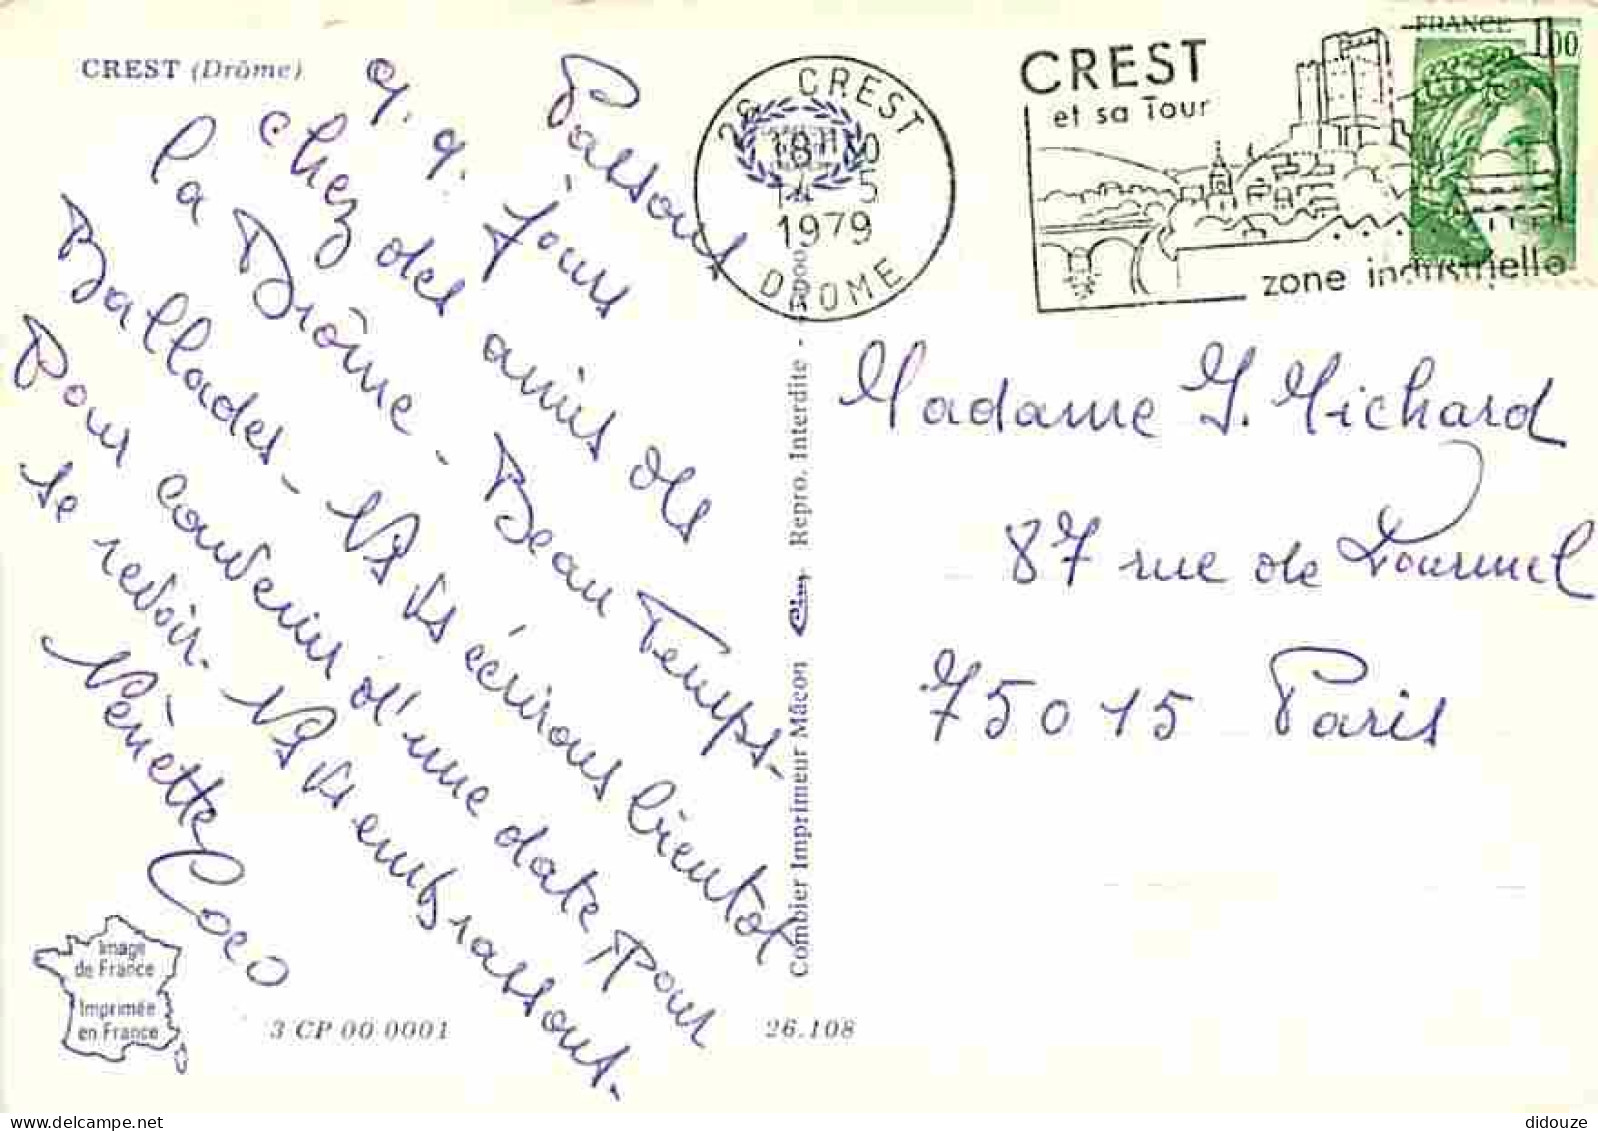 CREST (Drôme)
Passons
q. q. jours
chez des amis de
la Drôme - Beau Temps -
Ballades - Ns vs écrirons bientôt
Pour convenir d'une date Pour
se revoir. Ns vs embrassons.
Nénette
Coco
Image
de France
Imprimée
en France
3 CP 00 0001
26.108
Combier Imprimeur Mâcon
Repro. Interdite -
26 CREST
18H
5
1979
DROME
CREST
et sa Tour
zone industrielle
FRANCE
1,00
Madame J. Michard
87 rue de Lourmel
75015 Paris
didouze